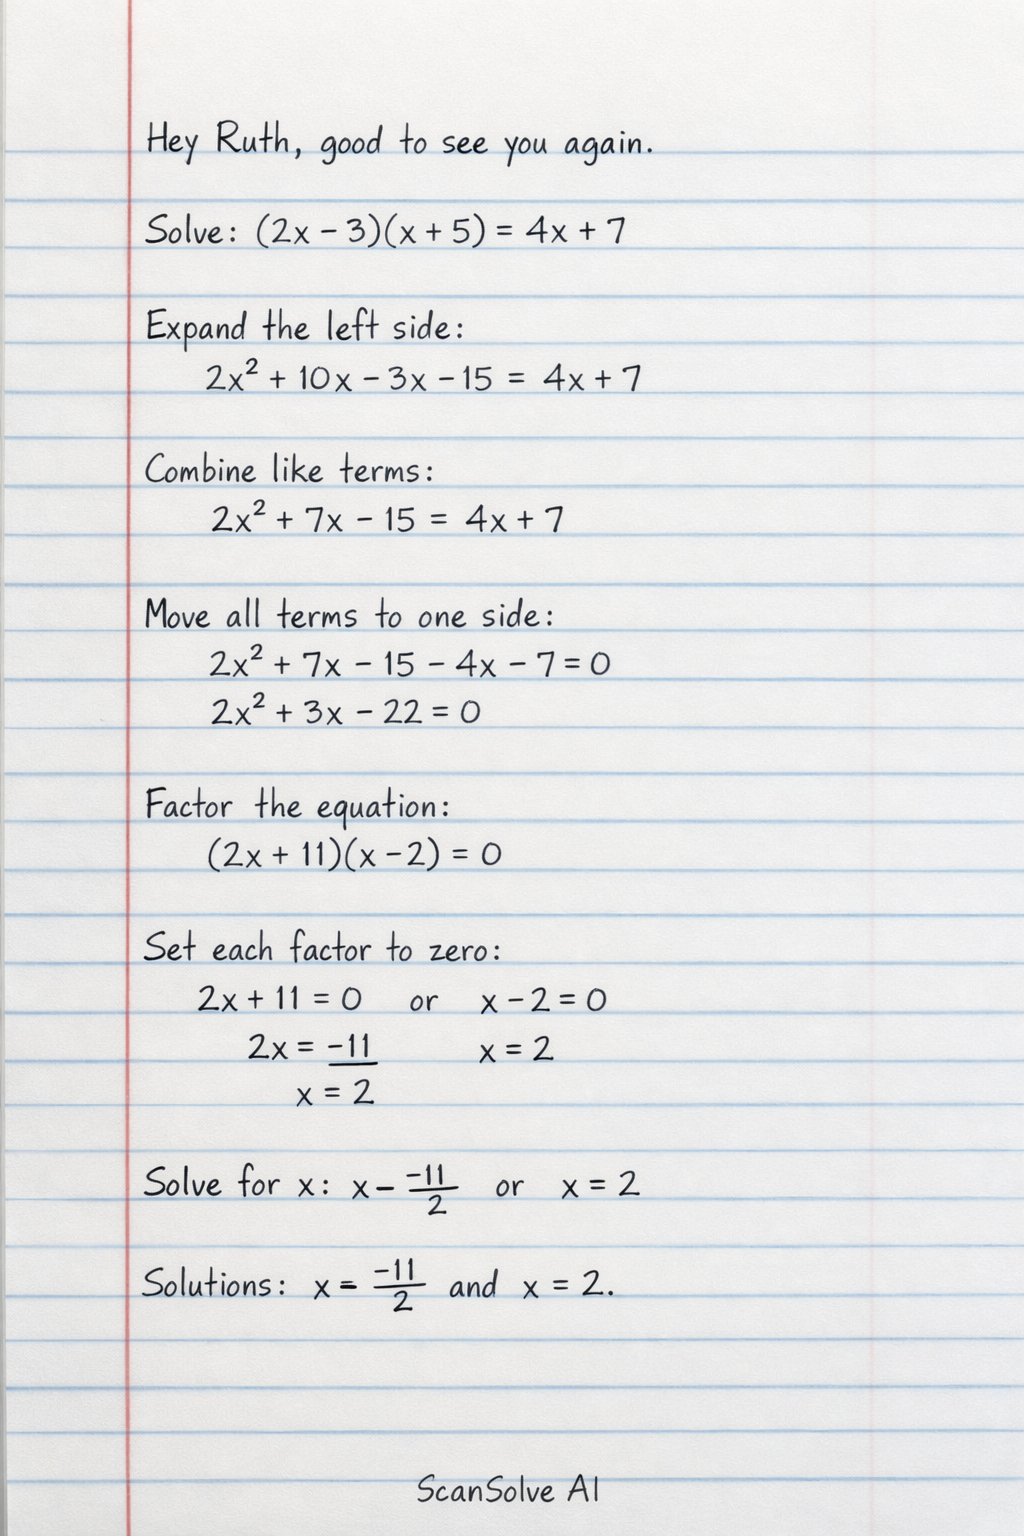 Hey Ruth, good to see you again.
Solve: (2x - 3)(x + 5) = 4x + 7
Expand the left side:
2x² + 10x - 3x - 15 = 4x + 7
Combine like terms:
2x² + 7x - 15 = 4x + 7
Move all terms to one side:
2x² + 7x - 15 - 4x - 7 = 0
2x² + 3x - 22 = 0
Factor the equation:
(2x + 11)(x - 2) = 0
Set each factor to zero:
2x + 11 = 0 or x - 2 = 0
2x = -11 x = 2
x = 2
Solve for x: x - -11/2 or x = 2
Solutions: x = -11/2 and x = 2.
ScanSolve AI